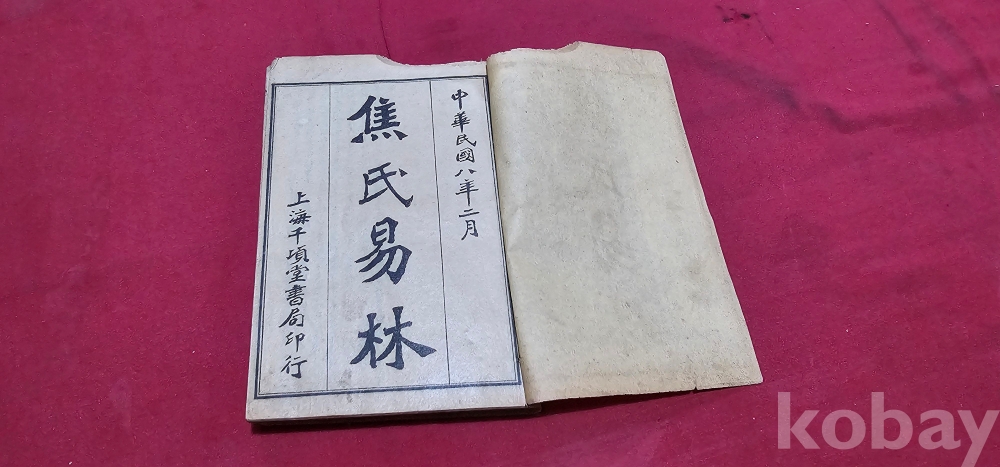 中華民國八年二月
焦氏易林
上海千頃堂書局印行
kobay